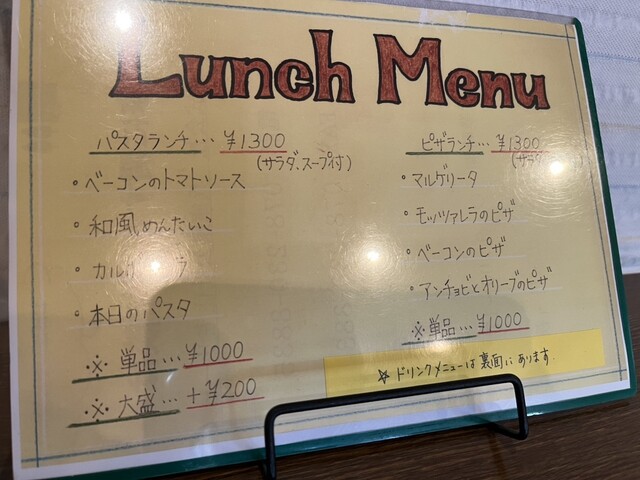 Lunch Menu
パスタランチ… ¥1300
(サラダ、スープ付)
・ベーコンのトマトソース
・和風めんたいこ
・本日のパスタ
※単品…¥1000
※大盛…+¥200
ピザランチ… ¥1300
(サラダ
・マルゲリータ
・モッツァレラのピザ
・ベーコンのピザ
・アンチョビとオリーブのピザ
※単品…¥1000
☆ドリンクメニューは裏面にあります.